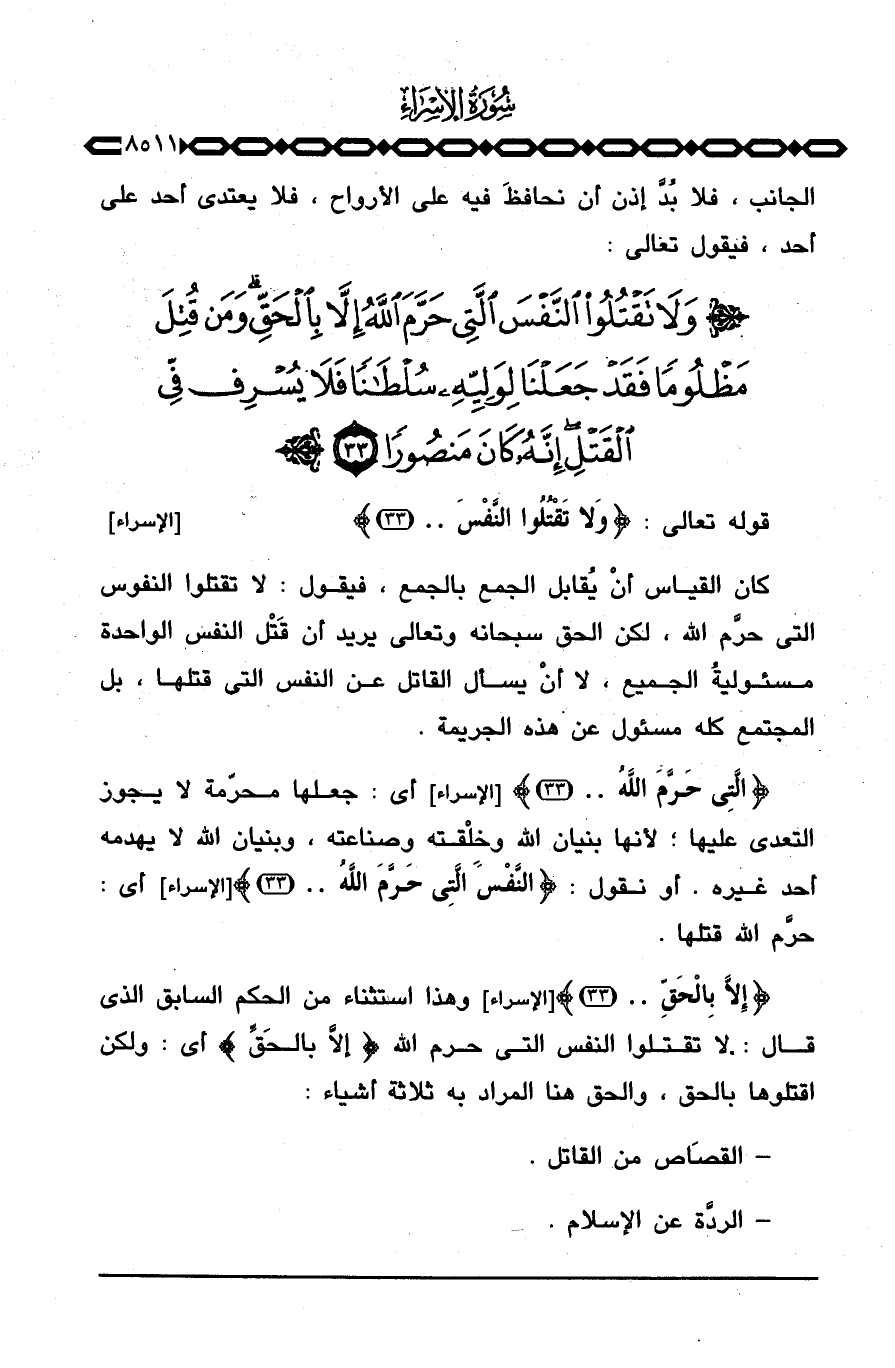 سُورَةُ الإِسْرَاءِ
٨٥١١
الجانب ، فلا بُدَّ إذن أن نحافظَ فيه على الأرواح ، فلا يعتدى أحد على
أحد ، فيقول تعالى :
وَلَا تَقْتُلُوا۟ ٱلنَّفْسَ ٱلَّتِى حَرَّمَ ٱللَّهُ إِلَّا بِٱلْحَقِّ ۗ وَمَن قُتِلَ
مَظْلُومًا فَقَدْ جَعَلْنَا لِوَلِيِّهِۦ سُلْطَـٰنًا فَلَا يُسْرِف فِّى
ٱلْقَتْلِ ۖ إِنَّهُۥ كَانَ مَنصُورًا ٣٣
قوله تعالى : ﴿ وَلا تَقْتُلُوا النَّفْسَ .. (٣٣) ﴾ [الإسراء]
كان القياس أنْ يُقابل الجمع بالجمع ، فيقول : لا تقتلوا النفوس
التى حرَّم الله ، لكن الحق سبحانه وتعالى يريد أن قَتْل النفس الواحدة
مسئوليةُ الجميع ، لا أنْ يسأل القاتل عن النفس التى قتلها ، بل
المجتمع كله مسئول عن هذه الجريمة .
﴿ الَّتِى حَرَّمَ اللَّهُ .. (٣٣) ﴾ [الإسراء] أى : جعلها محرّمة لا يجوز
التعدى عليها ؛ لأنها بنيان الله وخلْقته وصناعته ، وبنيان الله لا يهدمه
أحد غيره . أو نقول : ﴿ النَّفْسَ الَّتِى حَرَّمَ اللَّهُ .. (٣٣) ﴾[الإسراء] أى :
حرَّم الله قتلها .
﴿ إِلاَّ بِالْحَقِّ .. (٣٣) ﴾[الإسراء] وهذا استثناء من الحكم السابق الذى
قال : لا تقتلوا النفس التى حرم الله ﴿ إلاَّ بالحَقِّ ﴾ أى : ولكن
اقتلوها بالحق ، والحق هنا المراد به ثلاثة أشياء :
– القصَاص من القاتل .
– الردَّة عن الإسلام .